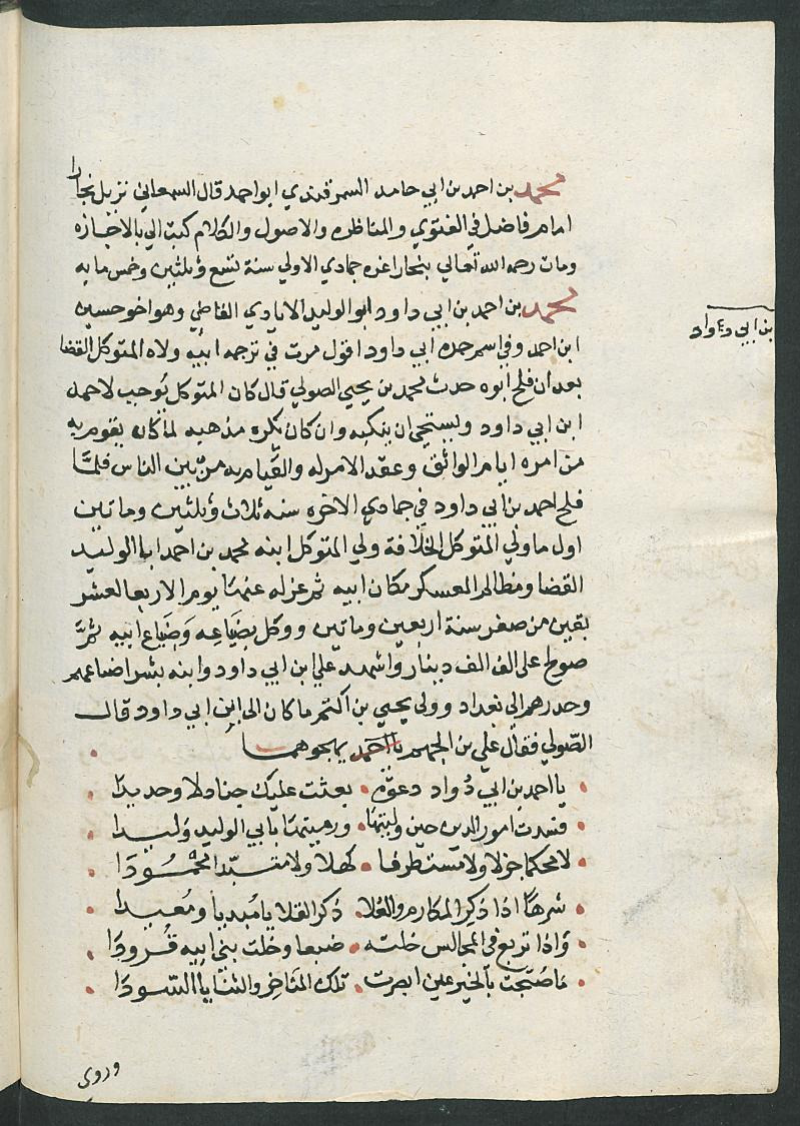 محمد بن احمد بن ابي حامد السمرقندي ابو احمد قال السمعاني نزيل بخارا
امام فاضل في الفتوي والمناظره والاصول والكلام كتب الي بالاجازه
ومات رحمه الله تعالي ببخارا غره جمادي الاولي سنة تسع وثلثين وخمس مايه
محمد بن احمد بن ابي داود ابو الوليد الايادي القاضي وهو اخو حسين
بن ابي دءواد
ابن احمد وفي اسم جده ابي داود اقول مرت في ترجمه ابيه ولاه المتوكل القضا
بعد ان فلج ابوه حدث محمد بن يحيي الصولي قال كان المتوكل يوجب لاحمد
ابن ابي داود ويستحي ان ينكبه وان كان يكره مذهبه لما كان يقوم به
من امره ايام الواثق وعقد الامر له والقيام به من بين الناس فلما
فلج احمد بن ابي داود في جمادي الاخره سنه ثلاث وثلثين وماتين
اول ما ولي المتوكل الخلافة ولي المتوكل ابنه محمد بن احمد ابا الوليد
القضا ومظالم العسكر مكان ابيه ثم عزله عنها يوم الاربعا لعشر
بقين من صفر سنة اربعين وماتين ووكل بضياعه وضياع ابيه ثم
صولح على الف الف دينار واشهد علي ابن ابي داود وابنه بشرا ضياعهم
وحدرهم الى بغداد وولى يحيي بن اكثم ما كان الى ابن ابي داود قال
الصولي فقال علي بن الجهم يهجوهما
يا احمد بن ابي دواد دعوة بعثت عليك جنادلا وحديدا
فسدت امور الدين حين وليتها ورميتها بابي الوليد وليدا
لا محكما جزلا ولا مستطرفا كهلا ولا متبدا محمودا
شرها اذا ذكر المكارم والعلا ذكر القلايا مبديا ومعيدا
واذا تربع في المجالس خلته ضبعا وخلت بني ابيه قرودا
ما صبحت بالخير عين ابصرت تلك المناخر والثنايا السودا
وروي